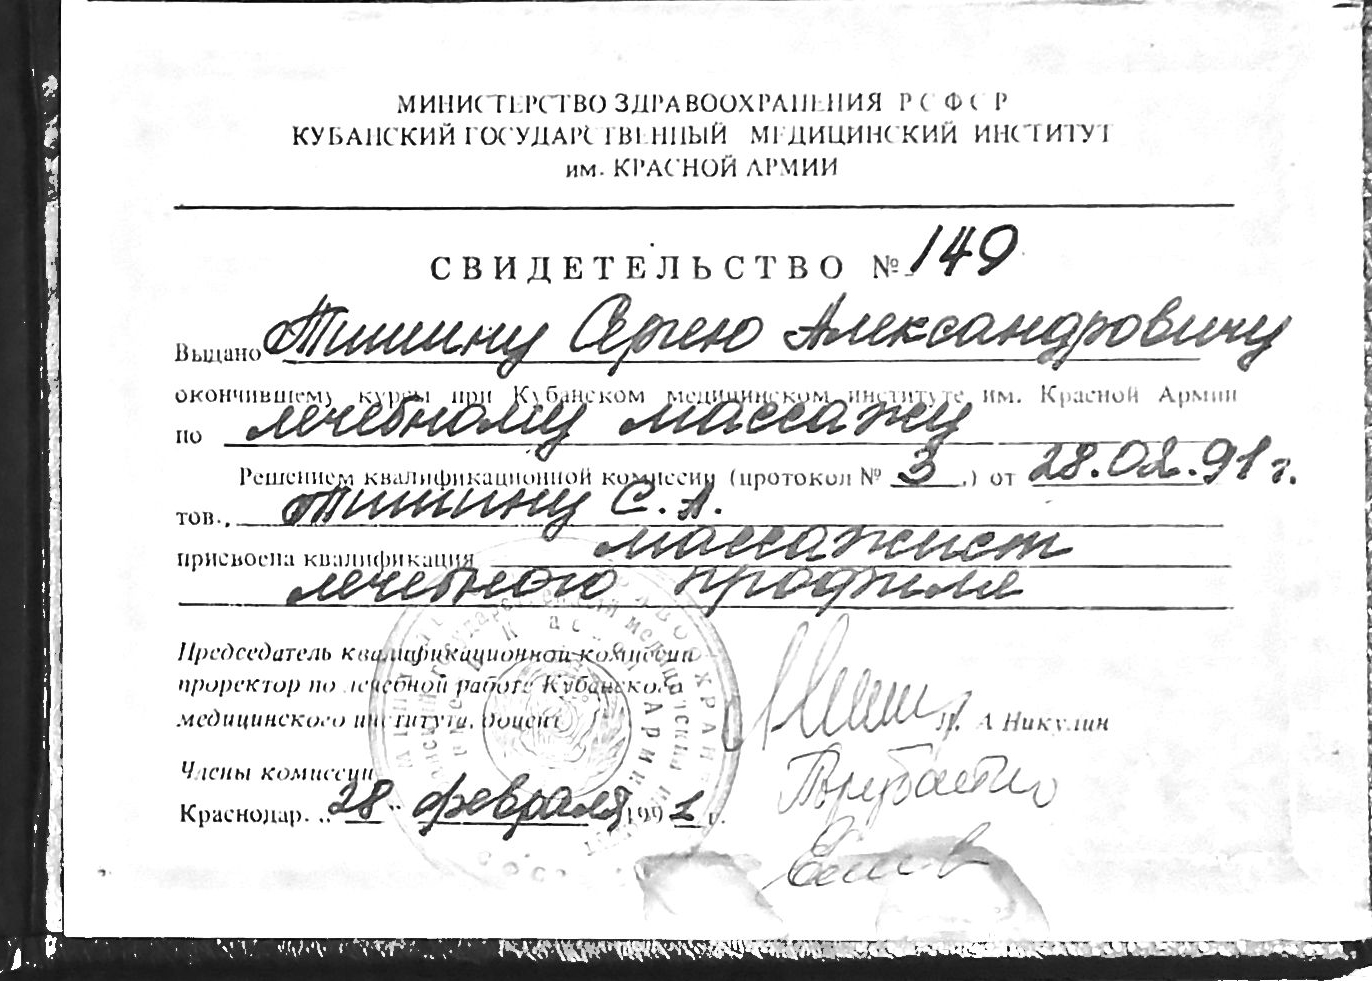 МИНИСТЕРСТВО ЗДРАВООХРАНЕНИЯ РСФСР
КУБАНСКИЙ ГОСУДАРСТВЕННЫЙ МЕДИЦИНСКИЙ ИНСТИТУТ
им. КРАСНОЙ АРМИИ
СВИДЕТЕЛЬСТВО № 149
Выдано Тишину Сергею Александровичу
окончившему курсы при Кубанском медицинском институте им. Красной Армии
по лечебному массажу
Решением квалификационной комиссии (протокол № 3.) от 28.02.91 г.
тов. Тишину С.А.
присвоена квалификация массажист
лечебного профиля
Председатель квалификационной комиссии
проректор по лечебной работе Кубанского
медицинского института, доцент А Никулин
Члены комиссии
Краснодар. „28" февраля 1991 г.